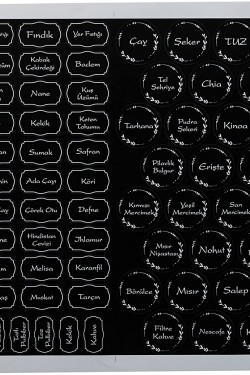 Fındık
Yer Fıstığı
Kabak
Çekirdeği
Badem
Nane
Kuş
Üzümü
Kekik
Keten
Tohumu
Sumak
Safran
Ada Çayı
Köri
Çörek Otu
Defne
Hindistan
Cevizi
Ihlamur
Melisa
Karanfil
Muskat
Tarçın
Tatlı
Pulbiber
Toz
Pulbiber
Kekik
Kahve
Çay
Şeker
TUZ
Tel
Şehriye
Chia
Tarhana
Pudra
Şekeri
Kinoa
Pilavlık
Bulgur
Erişte
Kırmızı
Mercimek
Yeşil
Mercimek
Sarı
Mercimek
Mısır
Nişastası
Nohut
Börülce
Mısır
Salep
Filtre
Kahve
Nescafe